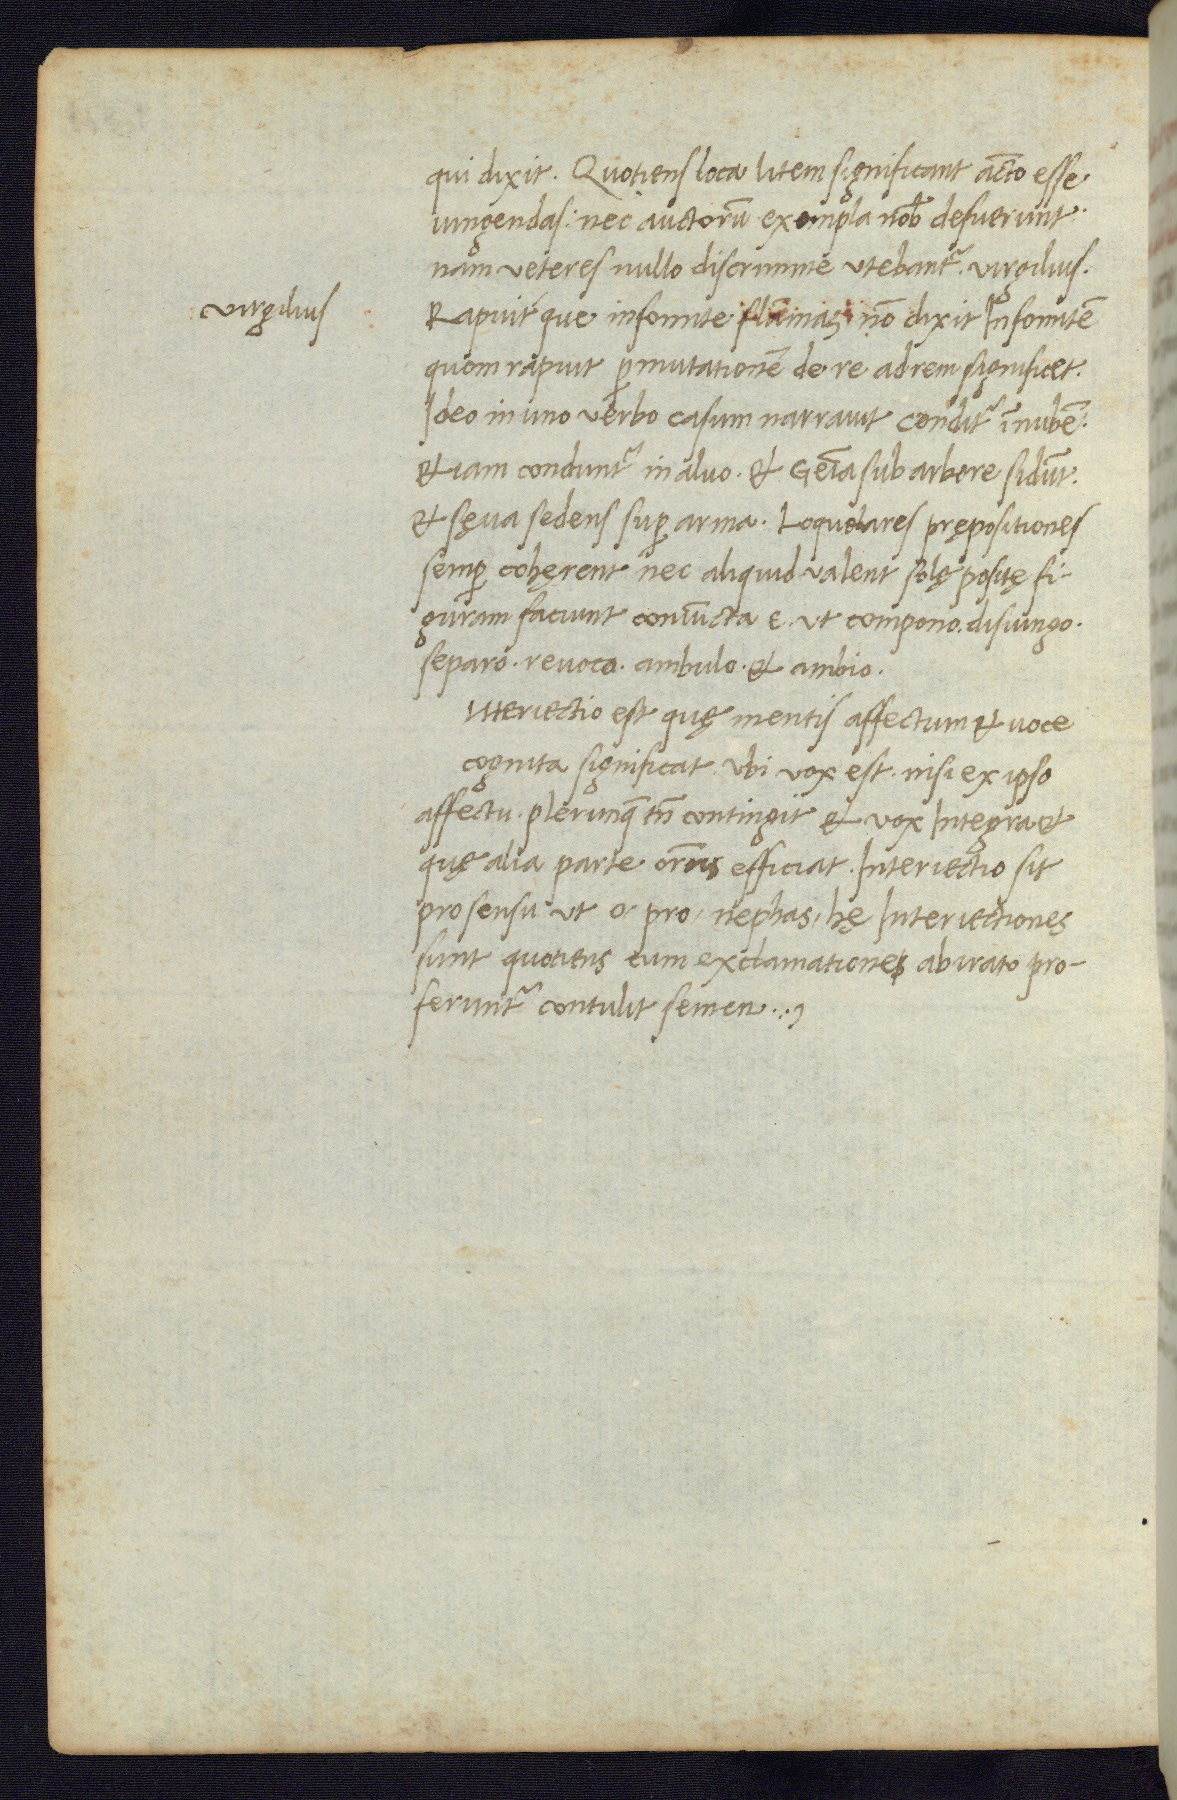 qui dixit. Quotiens loca litem significant acto̅ esse
iungendas: nec auctoru̅ exempla nob̅ defuerunt.
nam veteres nullo discrimine vtebant᷑. virgilius.
virgilius
Rapuit que infomite fla̅mas no̅ dixit Infomite̅
quom rapuit ꝑmutatione̅ de re ad rem significet.
Ideo in uno verbo casum narrauit condit᷑ i̅ nube̅.
&iam condunt᷑ in aluo. & Ge̅ia sub arbore sidu̅t.
& sęua sedens suꝑ arma. Loquelares prępositiones
semꝑ cohęrent nec aliquid valent solę positę fi-
guram faciunt coniu̅cta e. vt compono. disiungo.
separo. reuoco. ambulo. & ambio.
Nteriectio est quę mentis affectum & uoce
cognita significat vbi vox est. nisi ex ipso
affectu. plerunq̅ tn̅ contingit & vox Integra &
quę alia parte or̅nis efficiat. Interiectio sit
pro sensu ut o pro, nephas, hę Interiectiones
sunt quotiens cum exclamationes ab irato pro-
ferunt᷑ contulit semen...